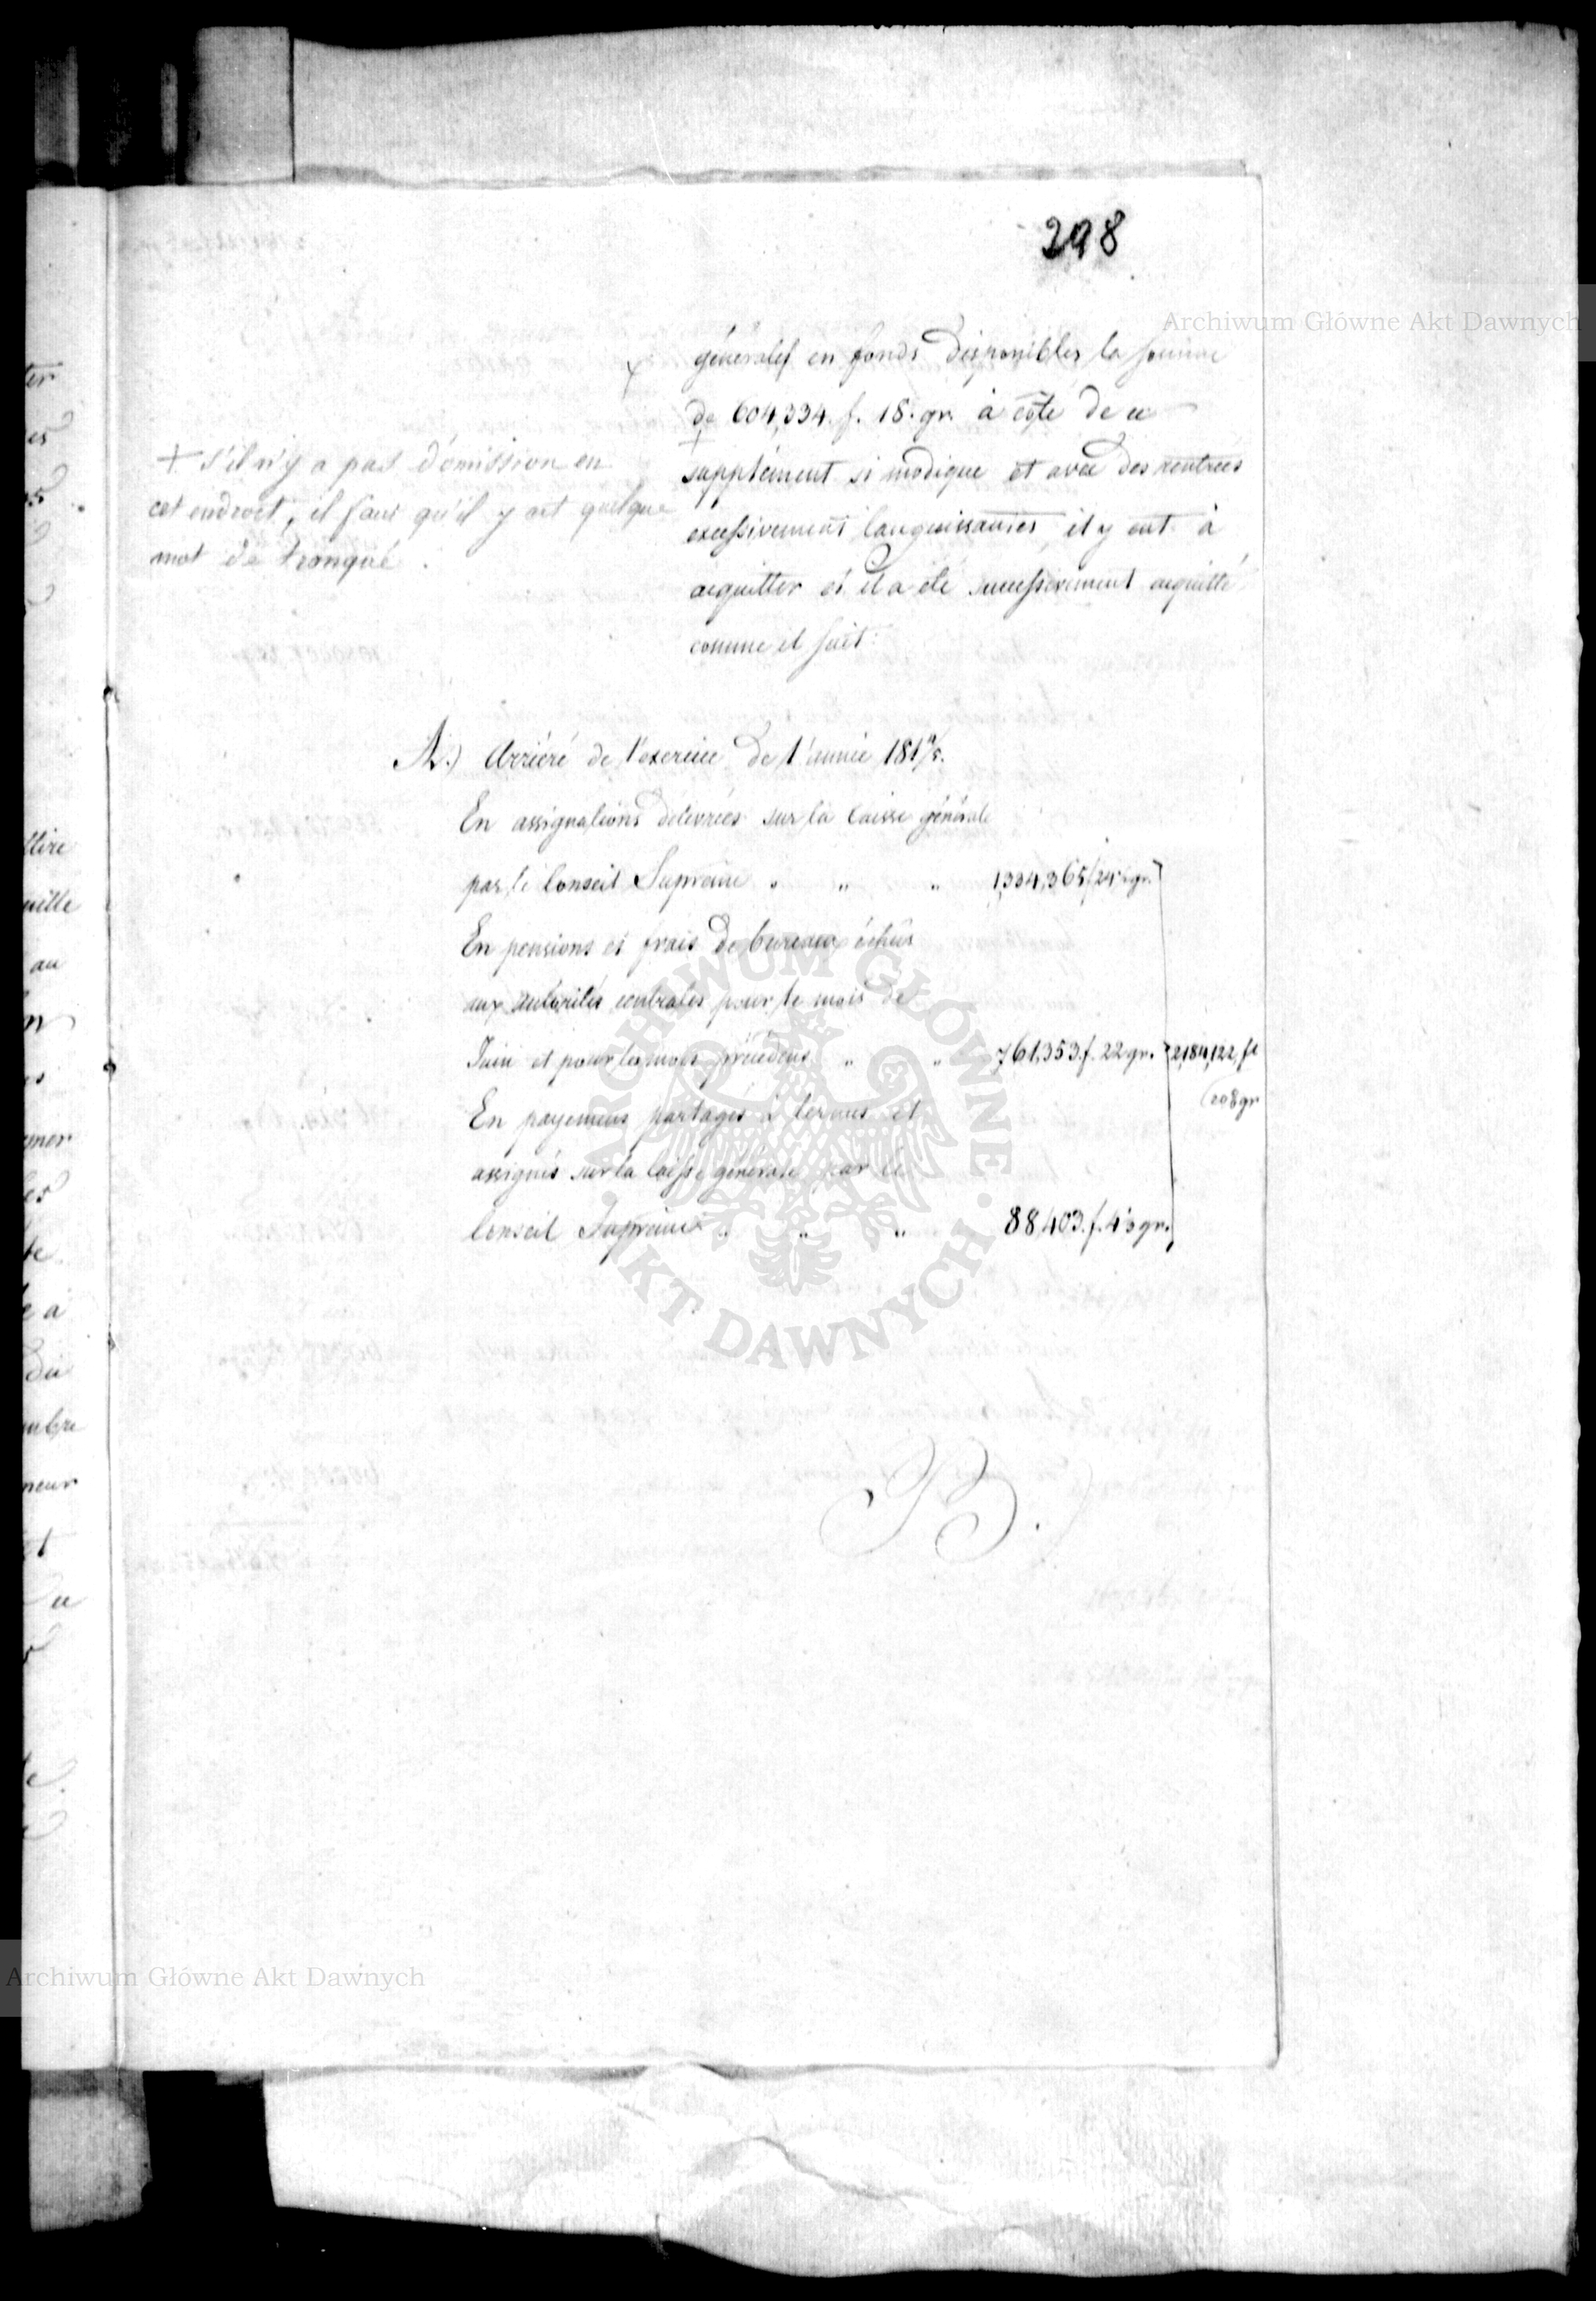 298
Archiwum Główne Akt Dawnych
généralef en fonds disponibles la somme
de 604,334. f. 18. gr. à côté de ce
supplément si modique et avec des rentrées
excessivement languissantes, il y eut à
acquitter et il a été successivement acquitté
comme il suit:
+ s'il n'y a pas d'omission en
cet endroit, il faut qu'il y ait quelque
mot de tronqué.
A.) Arriéré de l'exercice de l'année 1814/5.
En assignations délivrées sur la Caisse générale
par le Conseil Suprême " " " 1,334,365 f 24 gr.
En pensions et frais de bureaux échûs
aux autorités centrales pour le mois de
Juin et pour les mois précédens " " 761,353. f. 22 gr. 2,184,122, f
gr
En payemens partagés à termes et
assignés sur la Caisse générale par le
Conseil Suprême " " " 88,403. f. gr.
B.
ARCHIWUM GŁÓWNE · AKT DAWNYCH ·
Archiwum Główne Akt Dawnych